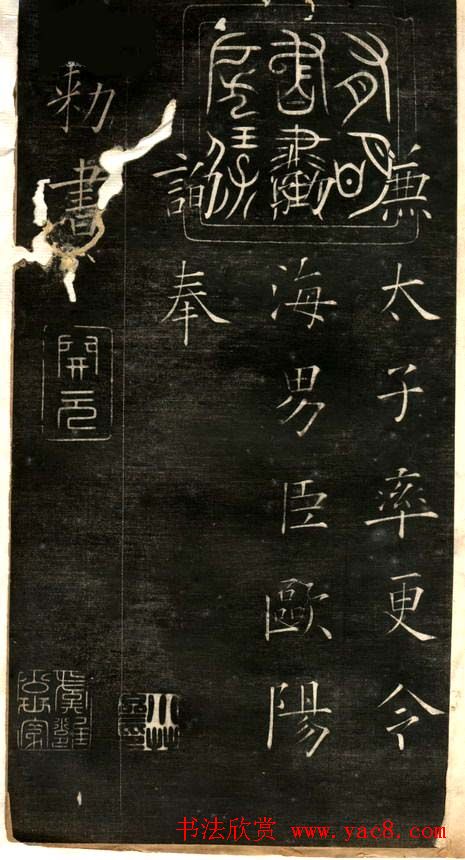 兼太子率更令
海男臣歐陽
詢奉
勅書
開元
书法欣赏 www.yac8.com